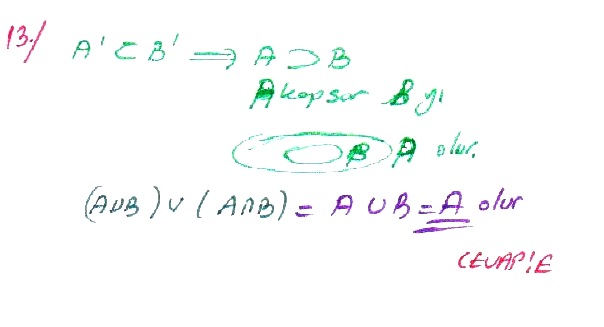 13./ A' ⊂ B' ⟹ A ⊃ B
A kapsar B yi
B A olur.
(A∪B) ∪ (A∩B) = A ∪ B = A olur
CEVAP: E